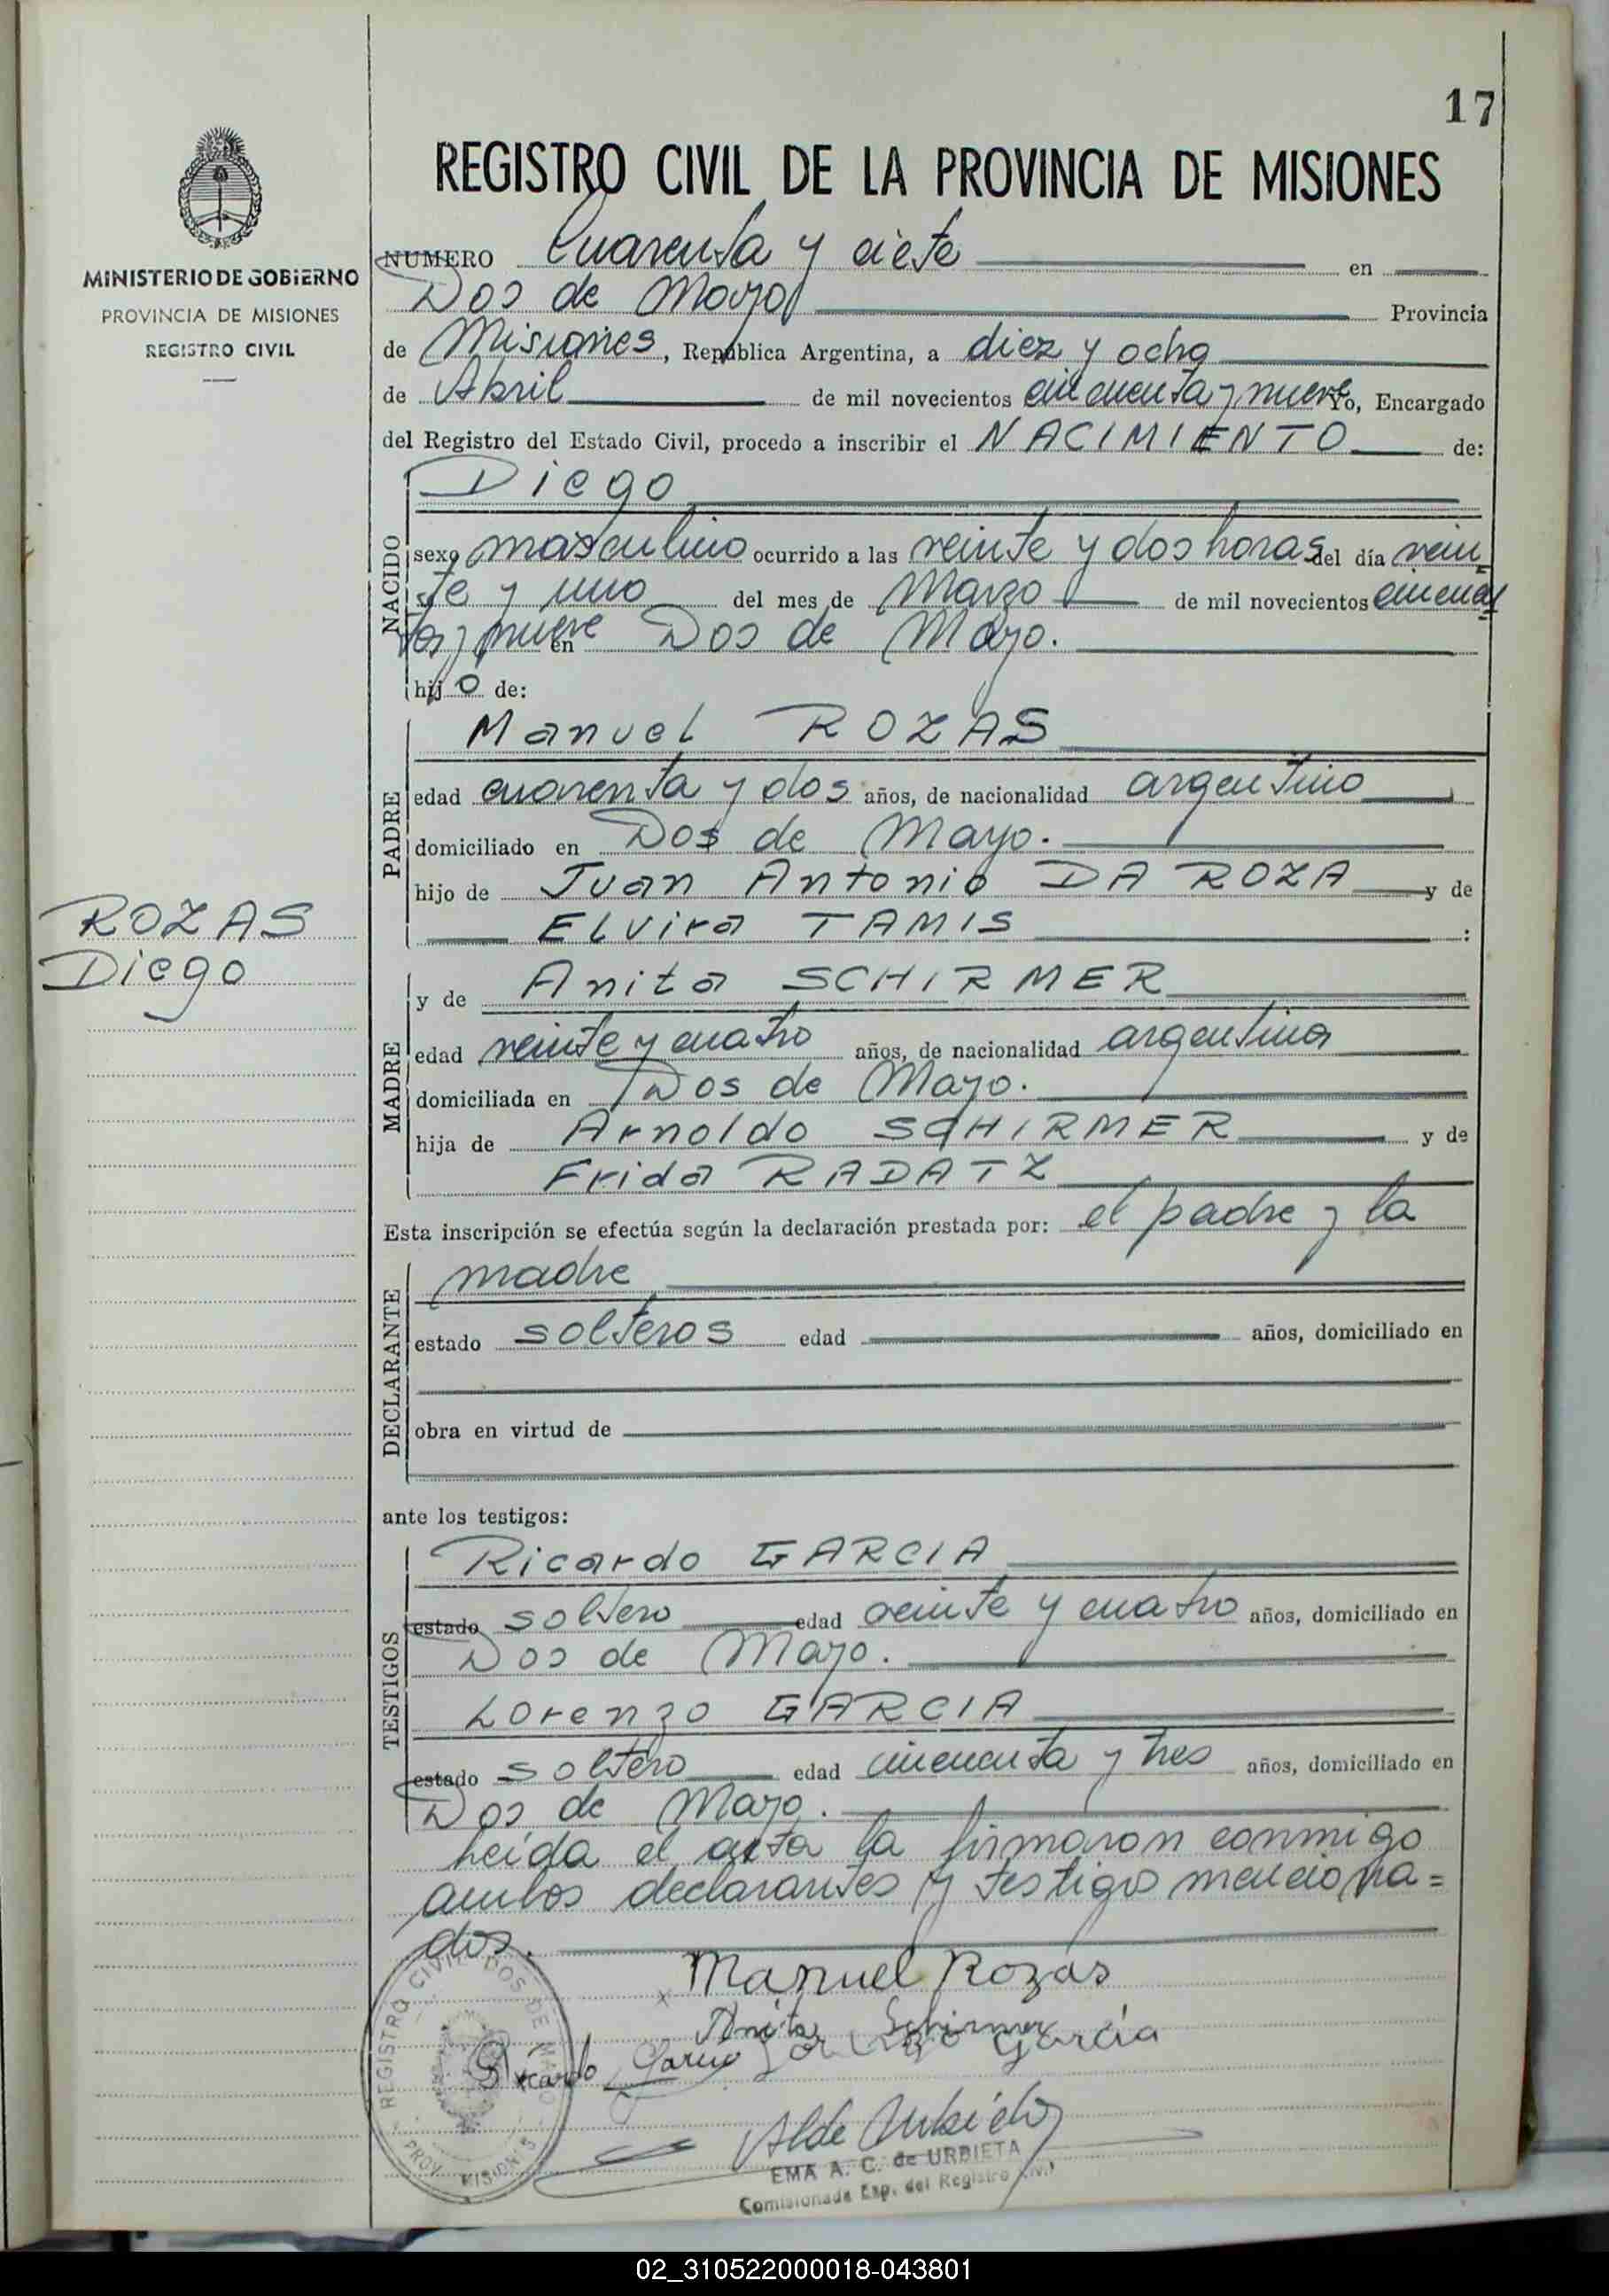 17
MINISTERIO DE GOBIERNO
PROVINCIA DE MISIONES
REGISTRO CIVIL
ROZAS
Diego
REGISTRO CIVIL DE LA PROVINCIA DE MISIONES
NUMERO Cuarenta y siete en
Dos de Mayo Provincia
de Misiones, República Argentina, a diez y ocho
de Abril de mil novecientos cincuenta y nueve Yo, Encargado
del Registro del Estado Civil, procedo a inscribir el NACIMIENTO de:
NACIDO
Diego
sexo masculino ocurrido a las veinte y dos horas del día vein
te y uno del mes de Marzo de mil novecientos cincuen
ta y nueve en Dos de Mayo.
hijo de:
PADRE
Manuel ROZAS
edad cuarenta y dos años, de nacionalidad argentino
domiciliado en Dos de Mayo.
hijo de Juan Antonio DA ROZA y de
Elvira TAMIS :
MADRE
y de Anita SCHIRMER
edad veinte y cuatro años, de nacionalidad argentina
domiciliada en Dos de Mayo.
hija de Arnoldo SCHIRMER y de
Frida RADATZ
Esta inscripción se efectúa según la declaración prestada por: el padre y la
DECLARANTE
madre
estado solteros edad años, domiciliado en
obra en virtud de
ante los testigos:
TESTIGOS
Ricardo GARCIA
estado soltero edad veinte y cuatro años, domiciliado en
Dos de Mayo.
Lorenzo GARCIA
estado soltero edad cincuenta y tres años, domiciliado en
Dos de Mayo.
Leída el acta la firmaron conmigo
ambos declarantes y testigos menciona=
dos.
Manuel Rozas
Anita Schirmer
Ricardo Garcia Lorenzo Garcia
REGISTRO CIVIL DOS DE MAYO
PROV. MISIONES
EMA A. C. de URBIETA
Comisionada Esp. del Registro Civil
02_310522000018-043801